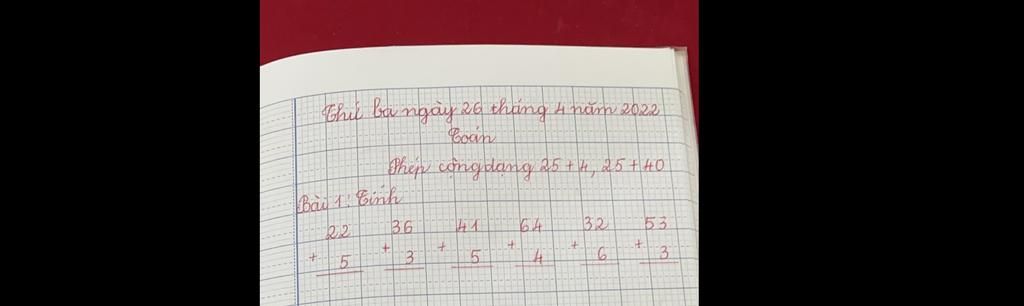 Thứ ba ngày 26 tháng 4 năm 2022
Toán
Phép cộng dạng 25 + 4, 25 + 40
Bài 1: Tính
22 36 41 64 32 53
+ 5 + 3 + 5 + 4 + 6 + 3